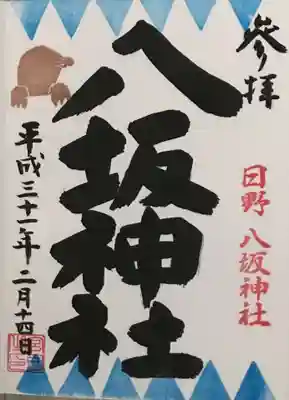 參拝
日野 八坂神社
八坂神社
平成三十一年 二月十四日